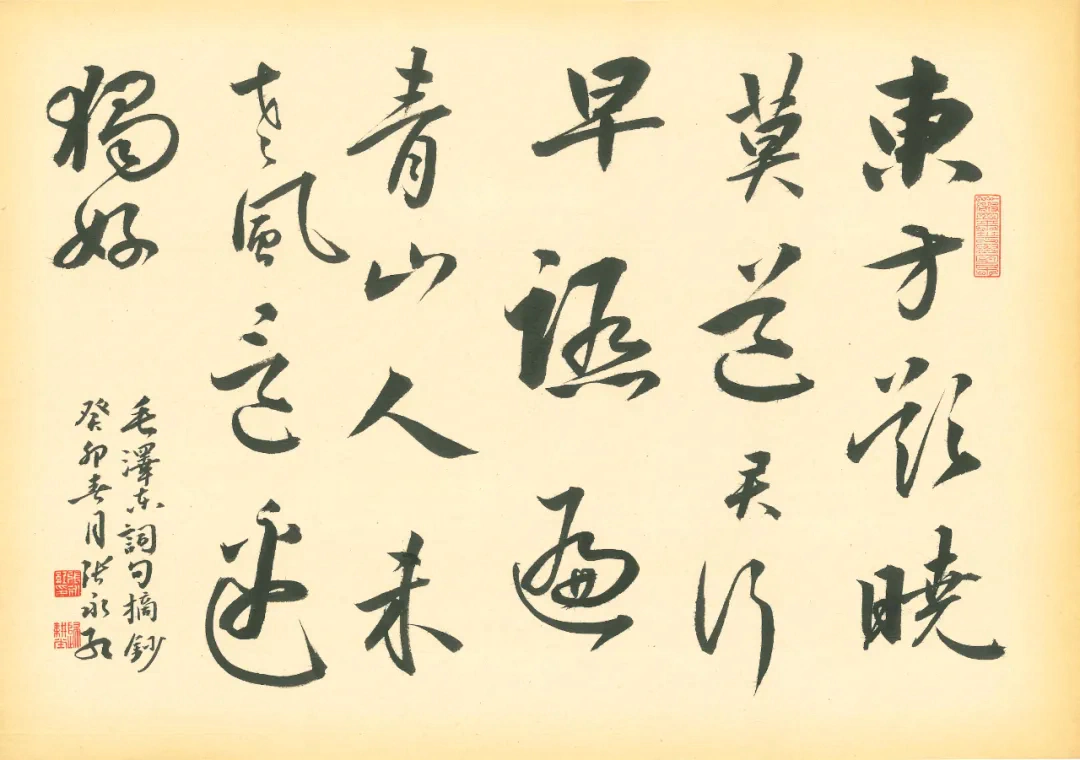 東方欲曉
莫道君行
早踏遍
青山人未
老風這邊
獨好
毛澤東詞句摘鈔
癸卯春月張永